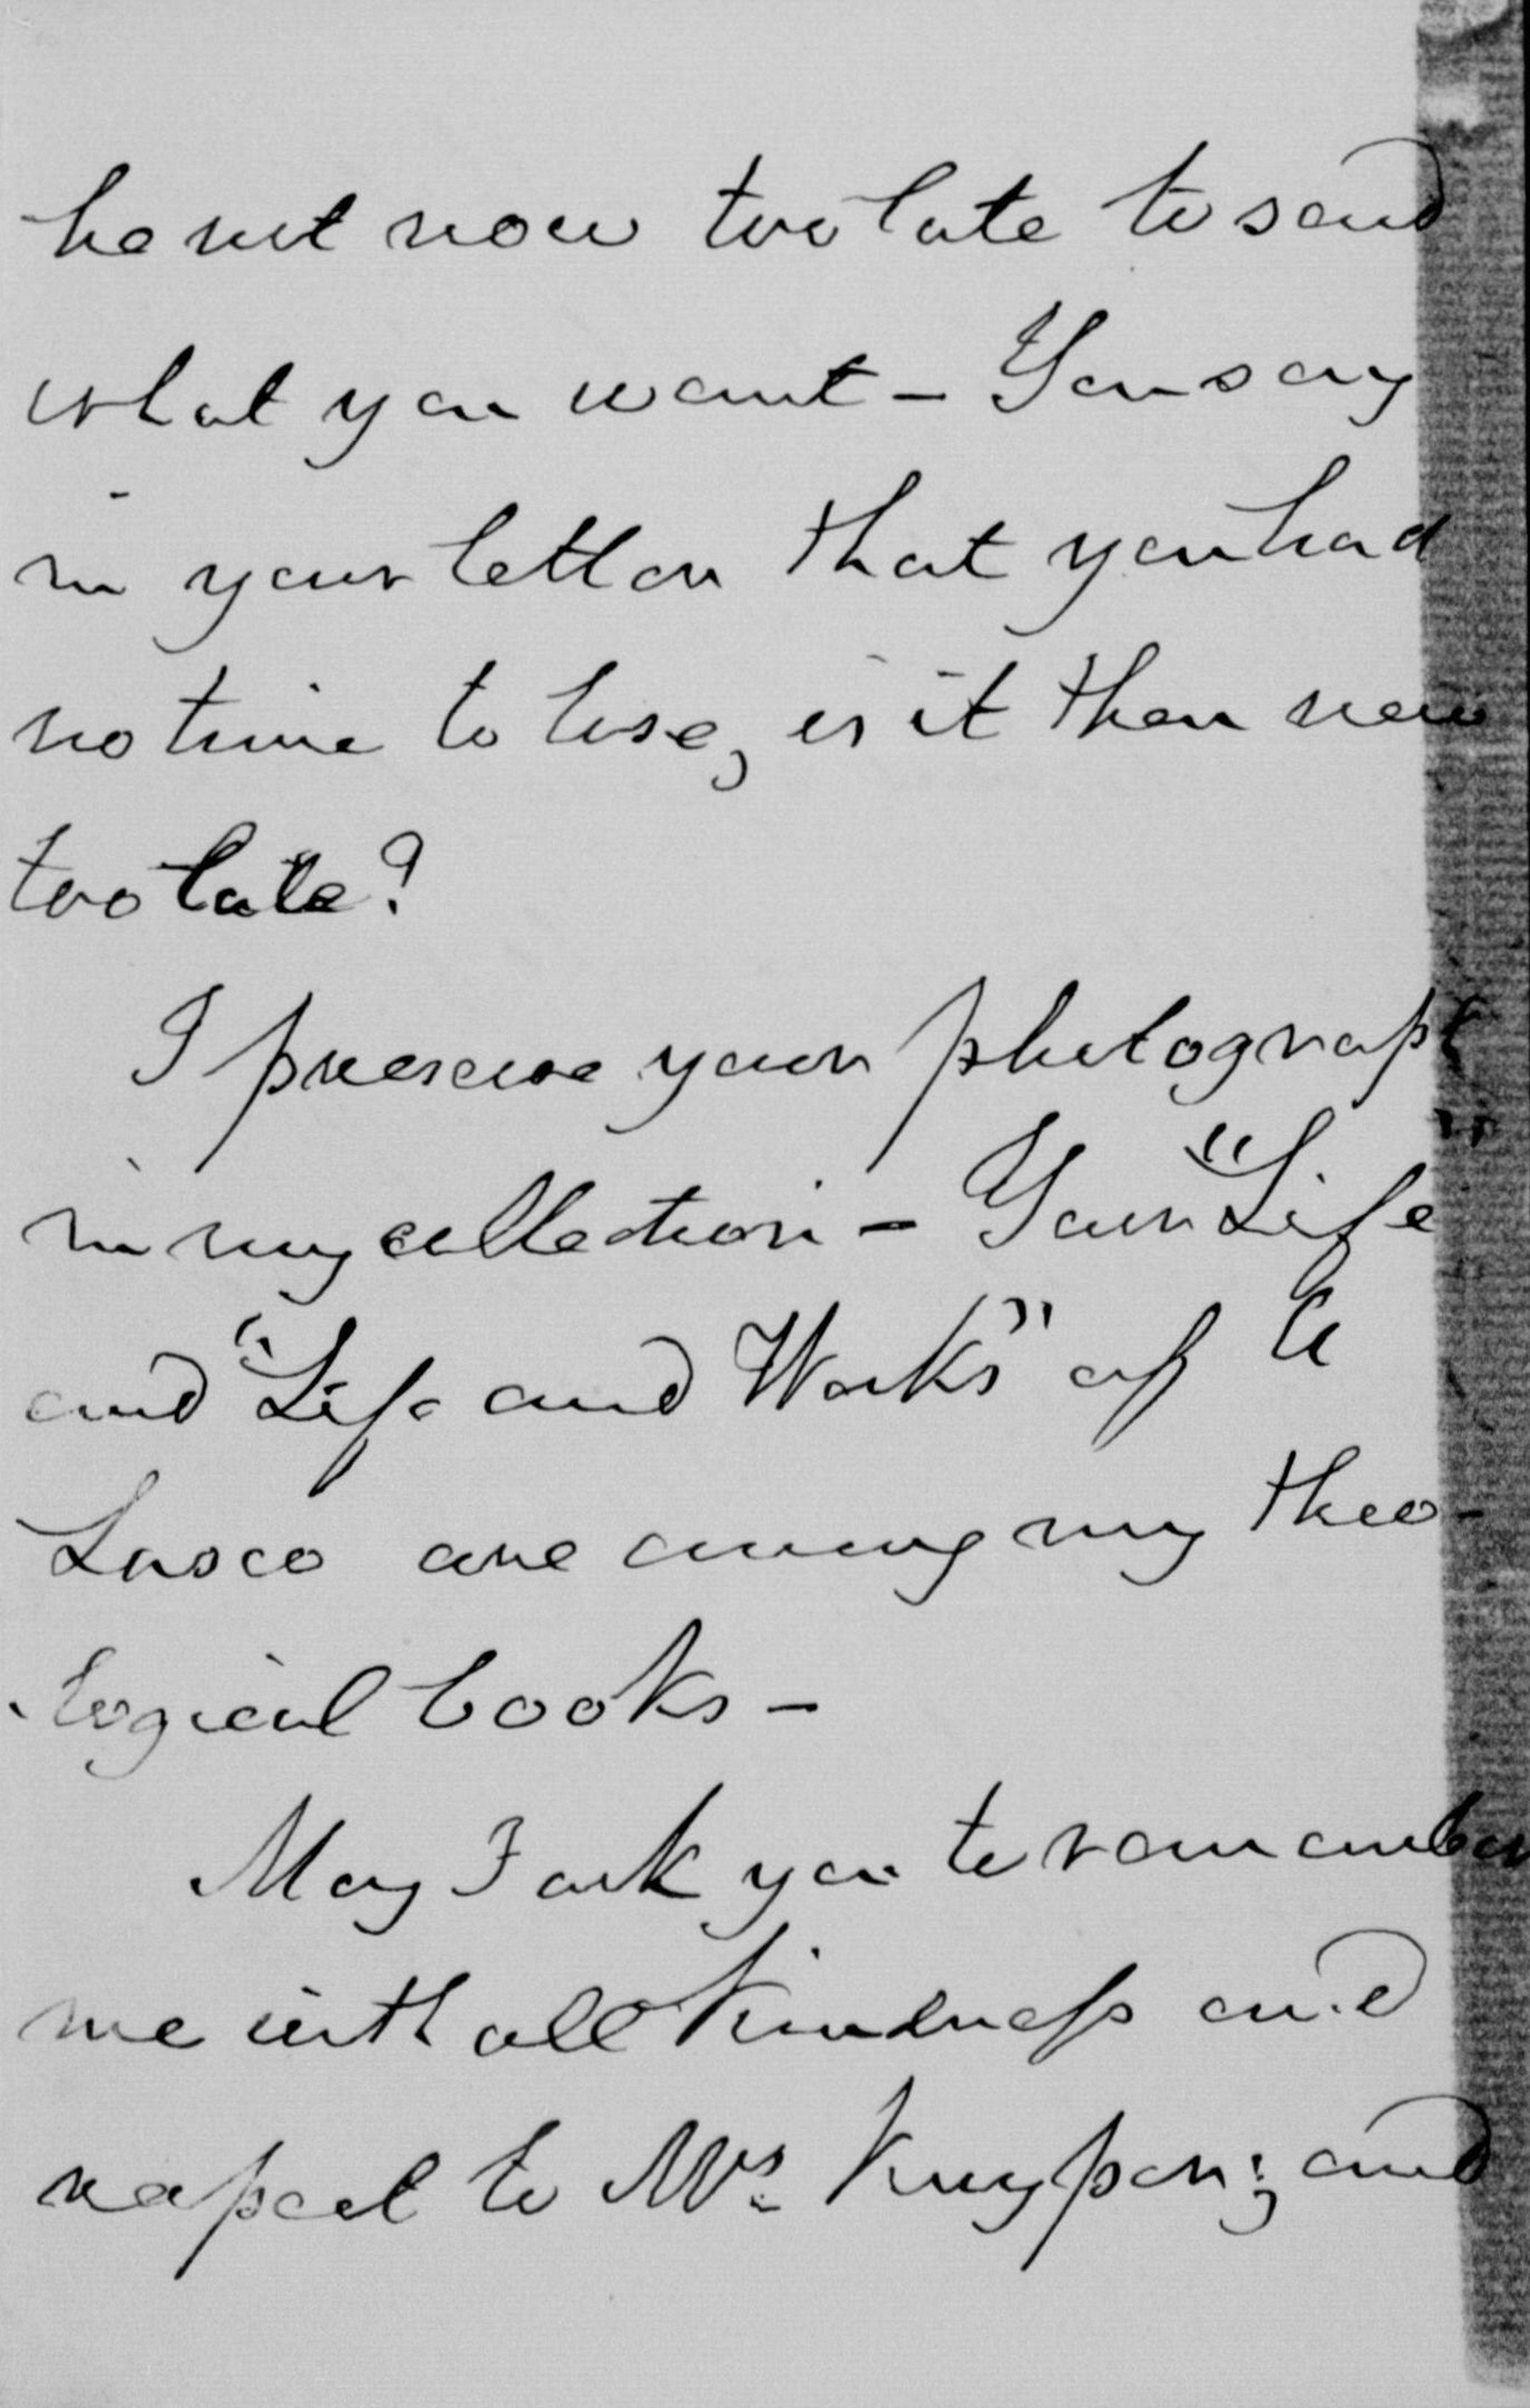 be not now too late to send
what you want – You say
in your letter that you had
no time to lose, is it then now
too late?
I preserve your photograph
in my collection – Your "Life"
and "Life and Works" of a
Lasco are among my theo-
logical books –
May I ask you to remember
me with all kindness and
respect to Mrs. Kuyper; and